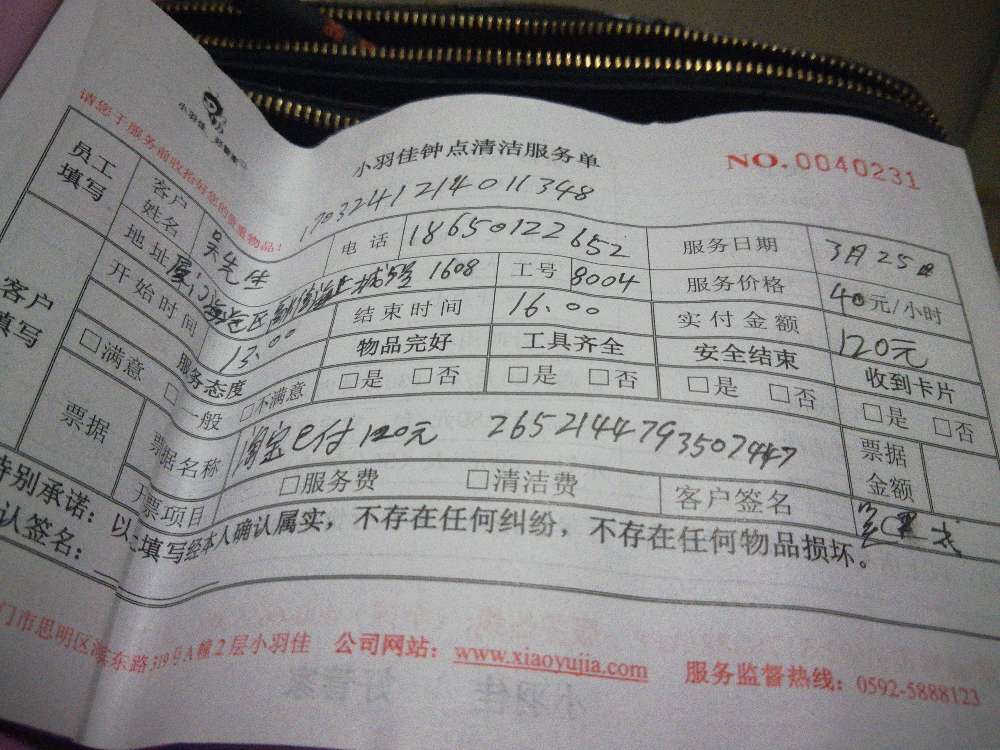 小羽佳 好管家
请您于服务前收拾好您的贵重物品！
小羽佳钟点清洁服务单
NO.0040231
170324121401​1348
员工填写 客户姓名 吴先生 电话 18650122652 服务日期 3月25日
地址 1608 工号 8004 服务价格 40元/小时
客户填写 开始时间 13:00 结束时间 16:00 实付金额 120元
服务态度 物品完好 工具齐全 安全结束 收到卡片
□满意 □一般 □不满意 □是 □否 □是 □否 □是 □否 □是 □否
票据 票据名称 淘宝e付120元 2652144793507447 票据金额
开票项目 □服务费 □清洁费 客户签名
特别承诺：以上填写经本人确认属实，不存在任何纠纷，不存在任何物品损坏。
认签名：
门市思明区 东路319号A幢2层小羽佳 公司网站：www.xiaoyujia.com 服务监督热线：0592-5888123
小羽佳 好管家